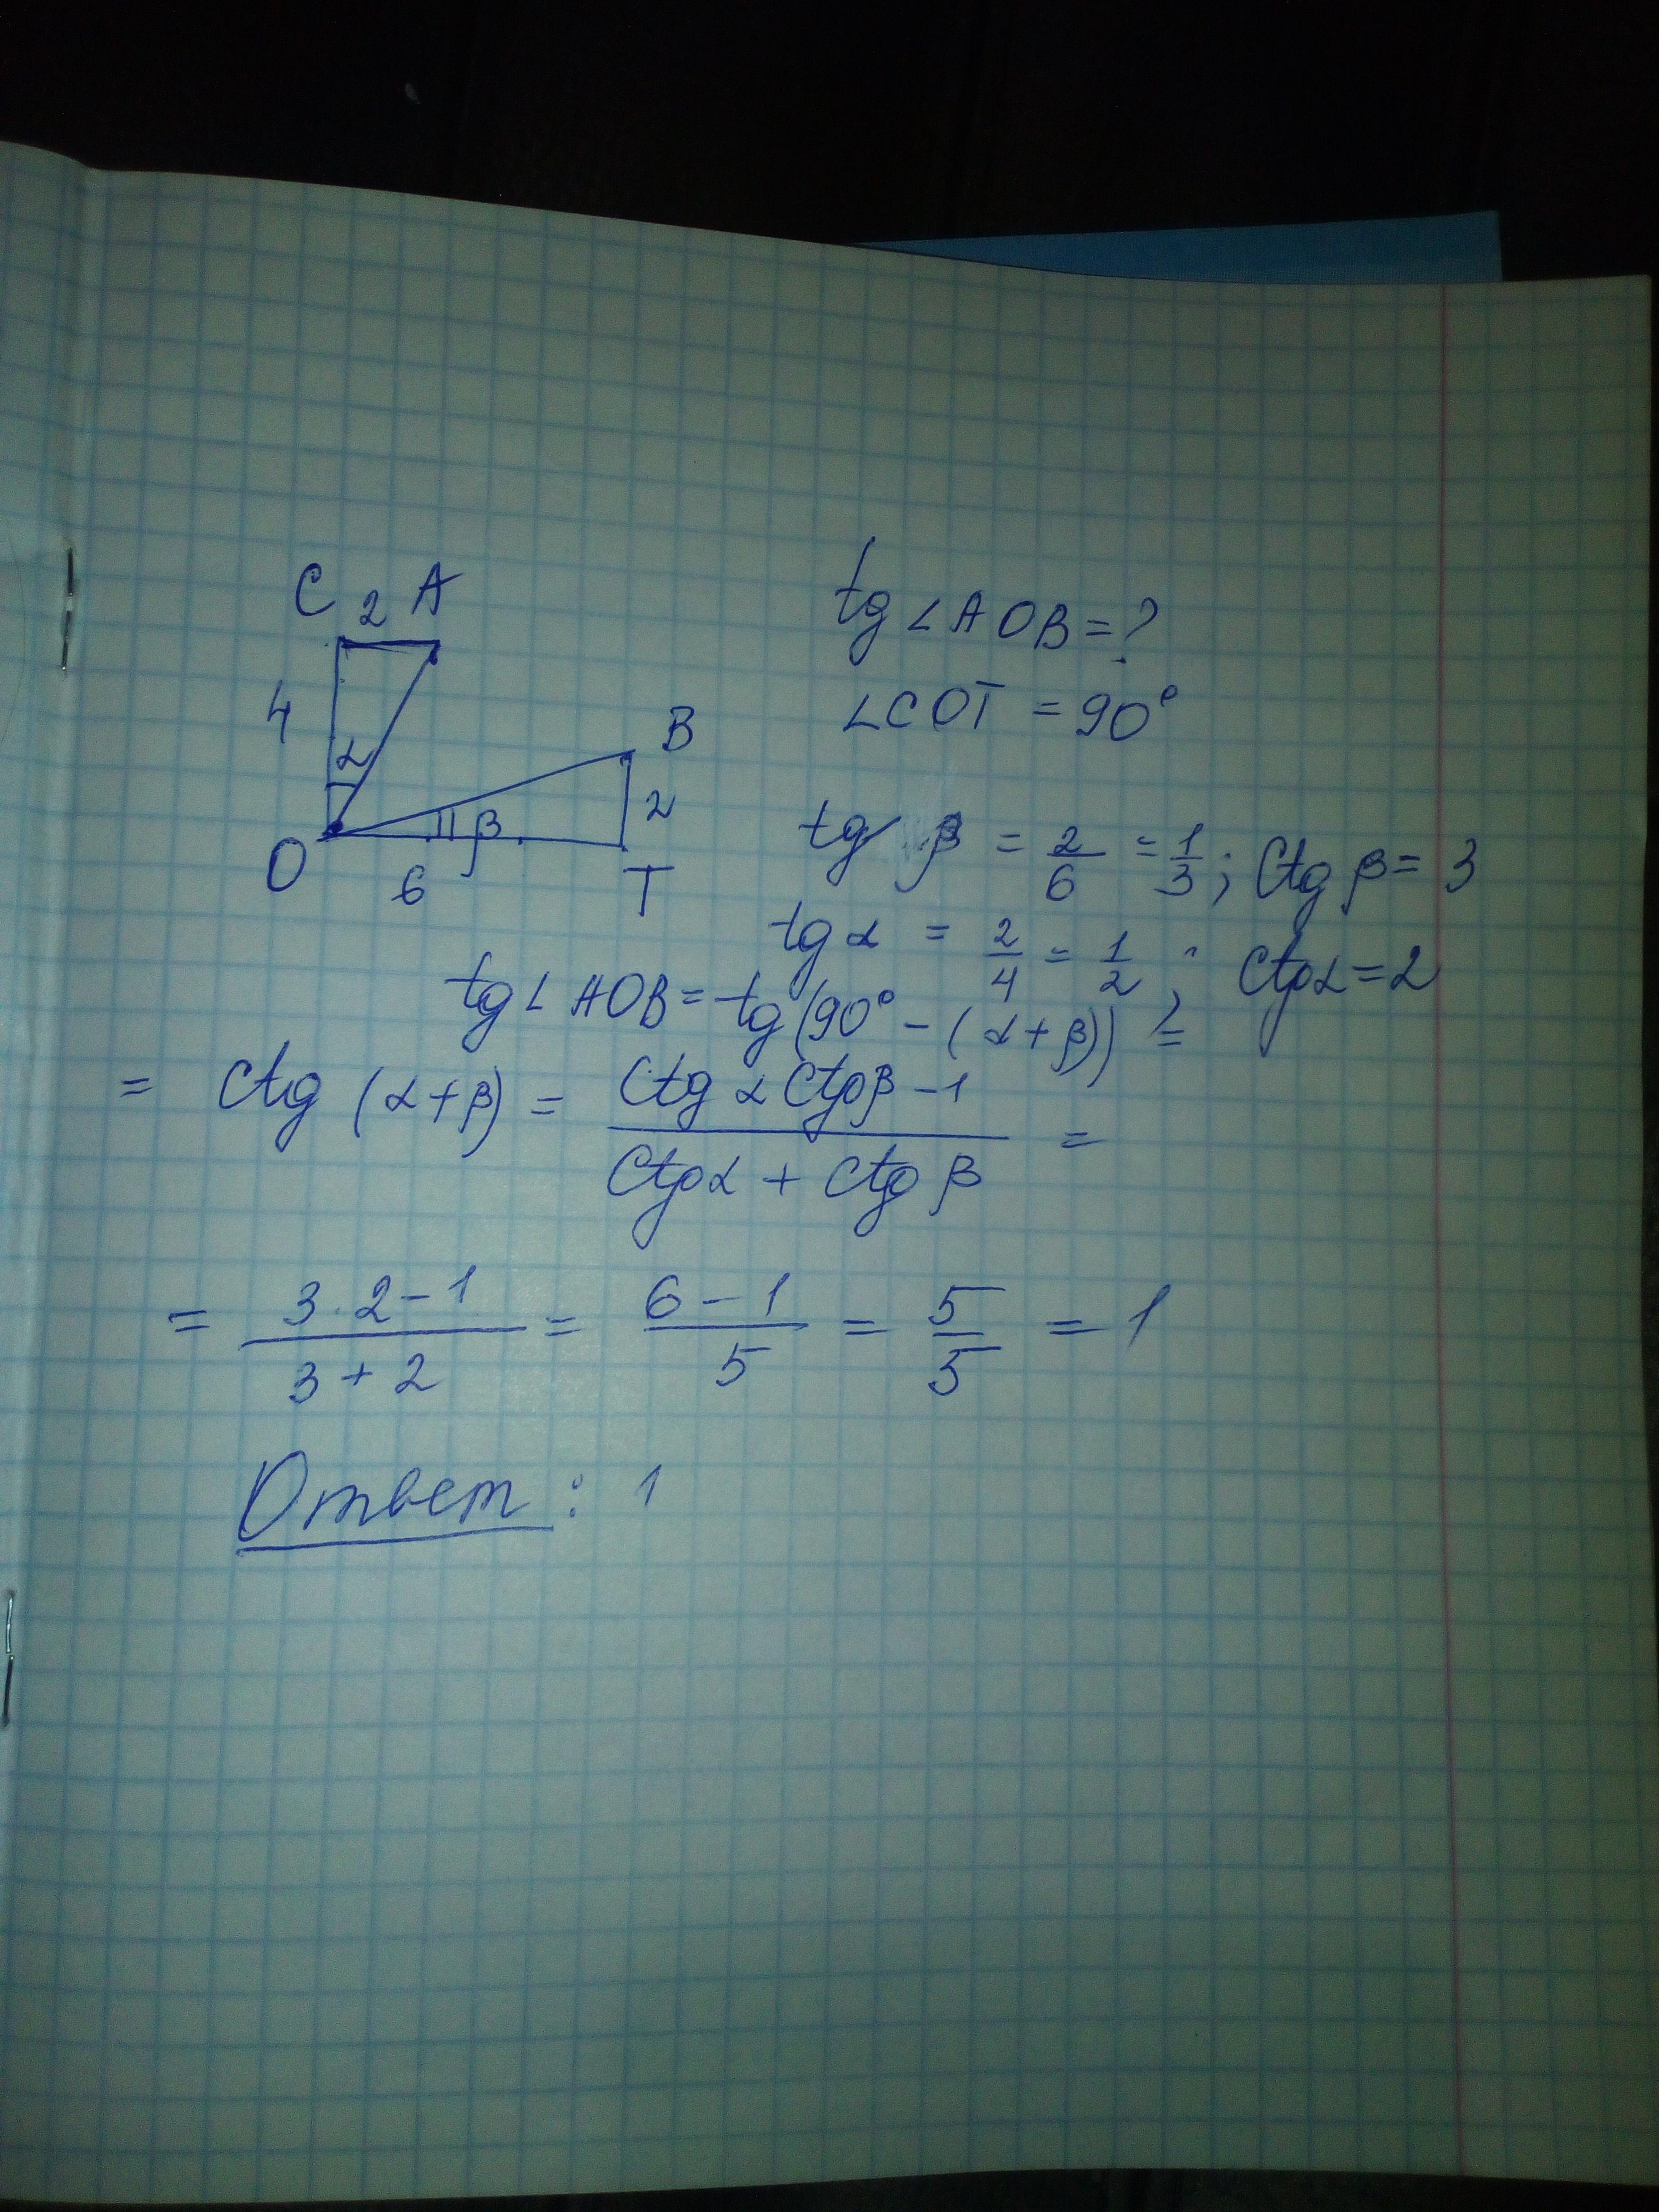 C 2 A
4
α
B
2
β
O
6
T
tg ∠AOB = ?
∠COT = 90°
tg β = 2/6 = 1/3 ; Ctg β = 3
tg α = 2/4 = 1/2 ; Ctg α = 2
tg ∠ AOB = tg (90° - (α + β)) =
= Ctg (α + β) = (Ctg α Ctg β - 1)/(Ctg α + Ctg β) =
= (3 · 2 - 1)/(3 + 2) = (6 - 1)/5 = 5/5 = 1
Ответ : 1